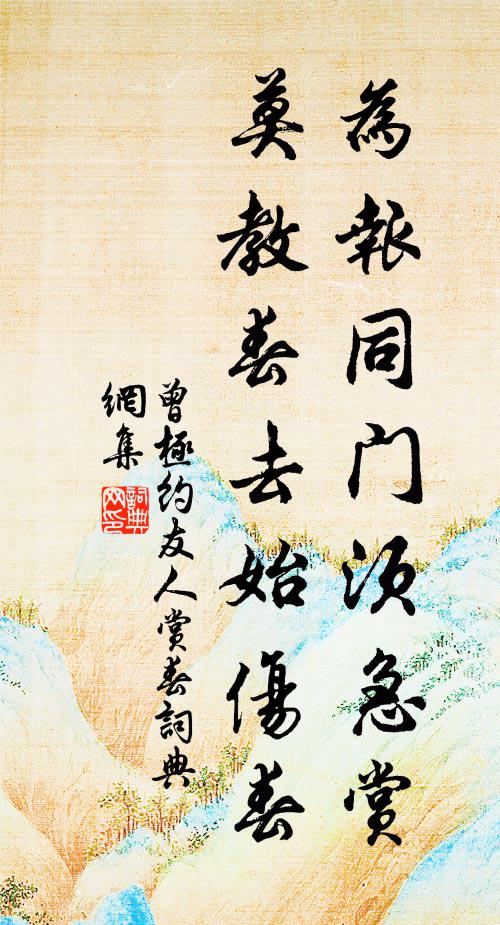 為報同門須急賞
莫教春去始傷春
曾極約友人賞春詞典
網集
詞典
网印